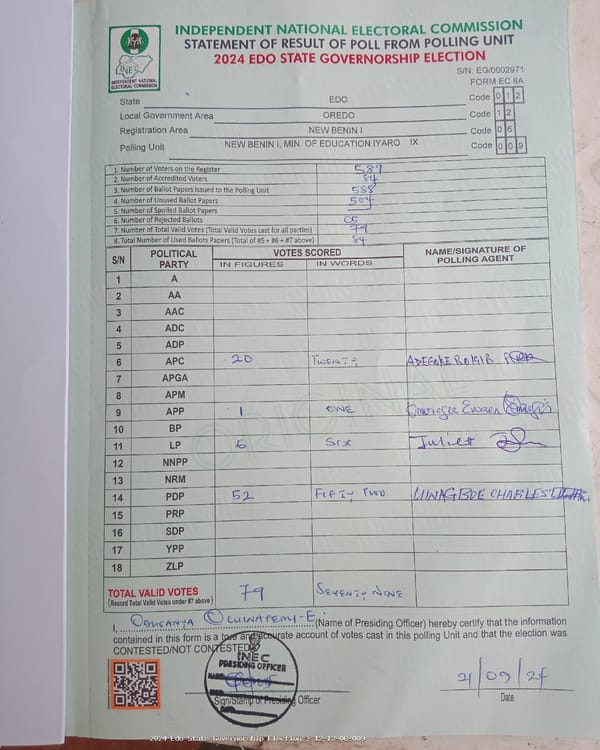 INDEPENDENT NATIONAL ELECTORAL COMMISSION
STATEMENT OF RESULT OF POLL FROM POLLING UNIT
2024 EDO STATE GOVERNORSHIP ELECTION
INEC
INDEPENDENT NATIONAL
ELECTORAL COMMISSION
S/N: EG/0002971
FORM EC 8A
State EDO Code 0 1 2
Local Government Area OREDO Code 1 2
Registration Area NEW BENIN I Code 0 6
Polling Unit NEW BENIN I, MIN. OF EDUCATION IYARO IX Code 0 0 9
1. Number of Voters on the Register 589
2. Number of Accredited Voters 84
3. Number of Ballot Papers Issued to the Polling Unit 588
4. Number of Unused Ballot Papers 504
5. Number of Spoiled Ballot Papers
6. Number of Rejected Ballots 05
7. Number of Total Valid Votes (Total Valid Votes cast for all parties) 79
8. Total Number of Used Ballots Papers (Total of #5 + #6 + #7 above) 84
S/N POLITICAL PARTY VOTES SCORED NAME/SIGNATURE OF POLLING AGENT
IN FIGURES IN WORDS
1 A
2 AA
3 AAC
4 ADC
5 ADP
6 APC 20 TWENTY ADEGOKE
7 APGA
8 APM
9 APP 1 ONE
10 BP
11 LP 6 SIX Juliet
12 NNPP
13 NRM
14 PDP 52 FIFTY TWO UWAGBOE CHARLES
15 PRP
16 SDP
17 YPP
18 ZLP
ORIGINAL
TOTAL VALID VOTES 79 SEVENTY NINE
(Record Total Valid Votes under #7 above)
I, (Name of Presiding Officer) hereby certify that the information
contained in this form is a true and accurate account of votes cast in this polling Unit and that the election was
CONTESTED/NOT CONTESTED
INEC
PRESIDING OFFICER
Sign/Stamp of Presiding Officer
21/09/24
Date
2024 Edo State Governorship Election : 12-12-06-009